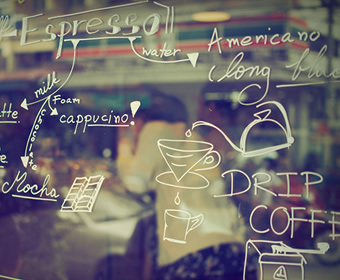 Espresso
water
Americano
long
milk
Foam
cappucino!
chocolate
Mocha
DRIP
COFF